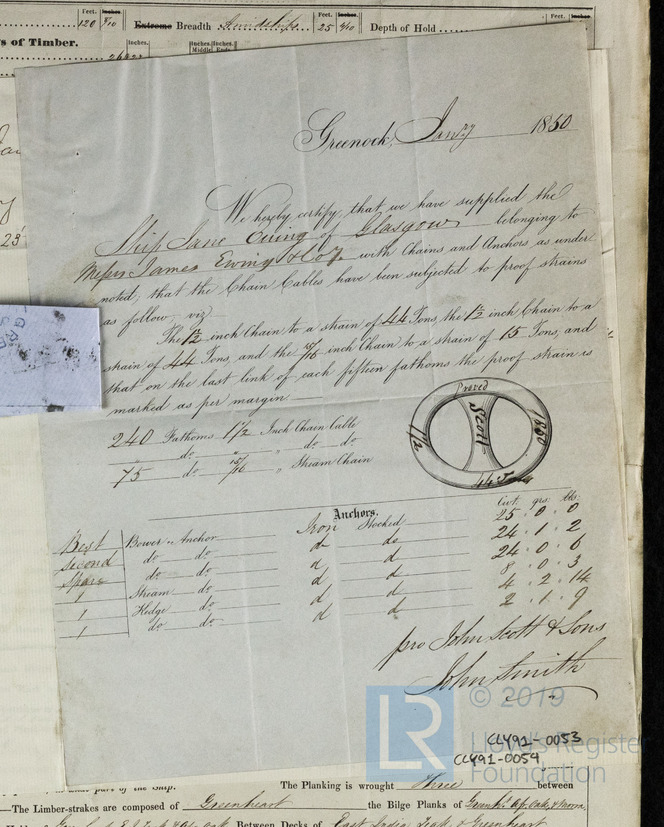 Feet. Inches. Feet. Inches. Feet. Inches.
120 Extreme Breadth Amidships 25 Depth of Hold
s of Timber. Inches. Inches. Inches.
Middle Ends
23
Greenock, Jany 1850
We hereby certify, that we have supplied the
Ship Jane Ewing of Glasgow belonging to
Messrs James Ewing & Coy. with Chains and Anchors as under
noted; that the Chain Cables have been subjected to proof strains
as follow, viz
The 1½ inch Chain to a strain of 44 Tons, the 1½ inch Chain to a
strain of 44 Tons, and the 15/16 inch Chain to a strain of 15 Tons, and
that on the last link of each fifteen fathoms the proof strain is
marked as per margin.
Proved
1½ Scott 1850
44 Tons
240 Fathoms 1½ Inch Chain Cable
do " " do do
75 do 15/16 " Stream Chain
Anchors. Cwt. qrs. lbs.
Best Bower Anchor Iron Stocked 25 . 0 . 0
Second do do do do 24 . 1 . 2
Spare do do d d 24 . 0 . 6
1 Stream do d d 8 . 0 . 3
1 Kedge do d d 4 . 2 . 14
1 do do d d 2 . 1 . 9
pro John Scott & Sons
John Smith
LR © 2019
Lloyd's Register
Foundation
CLY91-0053
CLY91-0054
part of the Ship. The Planking is wrought Three between
—The Limber-strakes are composed of Greenheart the Bilge Planks of Greenht. Af. Oak &
Between Decks of East India Teak & Greenheart